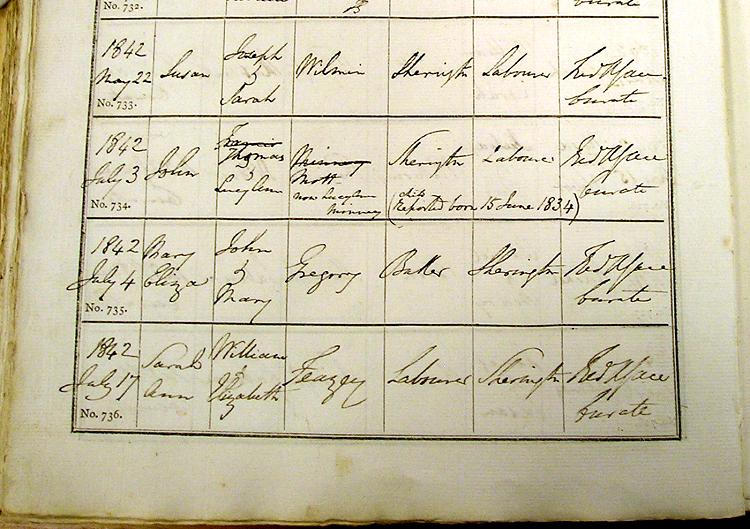 No. 732.
Curate
1842
May 22
No. 733.
Susan
Joseph
&
Sarah
Wilmin
Sherington
Labourer
Curate
1842
July 3
No. 734.
John
Francis
Thomas
&
Lucy Ann
Minney
Mott
now Lucy Ann
Minney
Sherington
Labourer
Reported born 15 June 1834)
Curate
1842
July 4
No. 735.
Mary
Eliza
John
&
Mary
Gregory
Baker
Sherington
Curate
1842
July 17
No. 736.
Sarah
Ann
William
&
Elizabeth
Feazey
Labourer
Sherington
Curate